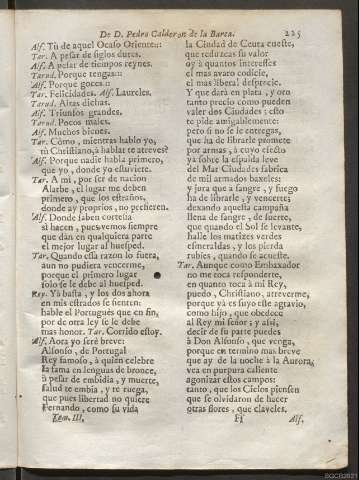 De D. Pedro Calderon de la Barca. 225
Alf. Tù de aquel Ocaso Oriente:::
Tar. A pesar de siglos dures.
Alf. A pesar de tiempos reynes.
Tarud. Porque tengas:::
Alf. Porque goces:::
Tar. Felicidades. Alf. Laureles.
Tarud. Altas dichas.
Alf. Triunfos grandes.
Tarud. Pocos males.
Alf. Muchos bienes.
Tar. Còmo, mientras hablo yo,
tù Christiano, à hablar te atreves?
Alf. Porque nadie habla primero,
que yo, donde yo estuviere.
Tar. A mi, por ser de nacion
Alarbe, el lugar me deben
primero, que los estraños,
donde ay proprios, no prefieren.
Alf. Donde saben cortesia
sì hacen, pues vemos siempre
que dàn en qualquiera parte
el mejor lugar al huesped.
Tar. Quando essa razon lo fuera,
aun no pudiera vencerme,
porque el primero lugar
solo se le debe al huesped.
Rey. Yà basta, y los dos ahora
en mis estrados se sienten:
hable el Portuguès que en fin,
por de otra ley se le debe
mas honor. Tar. Corrido estoy.
Alf. Aora yo serè breve:
Alfonso, de Portugal
Rey famoso, à quien celebre
la fama en lenguas de bronce,
à pesar de embidia, y muerte,
salud te embia, y te ruega,
que pues libertad no quiere
Fernando, como su vida
Tom. III.
la Ciudad de Ceuta cueste,
que reduzcas su valor
oy à quantos interesses
el mas avaro codicie,
el mas liberal desprecie.
Y que darà en plata, y oro
tanto precio como pueden
valer dos Ciudades; esto
te pide amigablemente;
pero si no se le entregas,
que ha de librarle promete
por armas, à cuyo efecto
yà sobre la espalda leve
del Mar Ciudades fabrica
de mil armados baxeles;
y jura que à sangre, y fuego
ha de librarle, y vencerte;
dexando aquesta campaña
llena de sangre, de suerte,
que quando el Sol se levante,
halle los matizes verdes
esmeraldas, y los pierda
rubies, quando se acueste.
Tar. Aunque como Embaxador
no me toca responderte,
en quanto toca à mi Rey,
puedo, Christiano, atreverme,
porque yà es suyo este agravio,
como hijo, que obedece
al Rey mi señor; y assi,
decir de su parte puedes
à Don Alfonso, que venga,
porque en termino mas breve
que ay de la noche à la Aurora,
vea en purpura caliente
agonizar estos campos:
tanto, que los Cielos piensen
que se olvidaron de hacer
otras flores, que claveles.
Ff Alf.